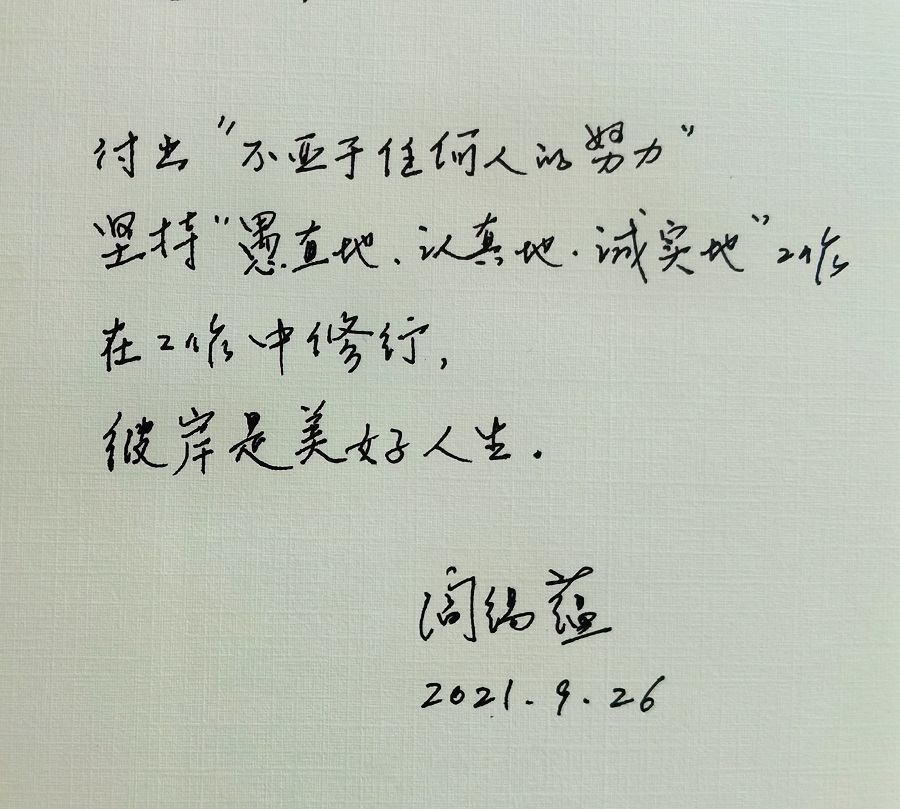 付出“不亚于任何人的努力”
坚持“愚直地、认真地、诚实地”工作
在工作中修行,
彼岸是美好人生.
阎锡蕴
2021.9.26